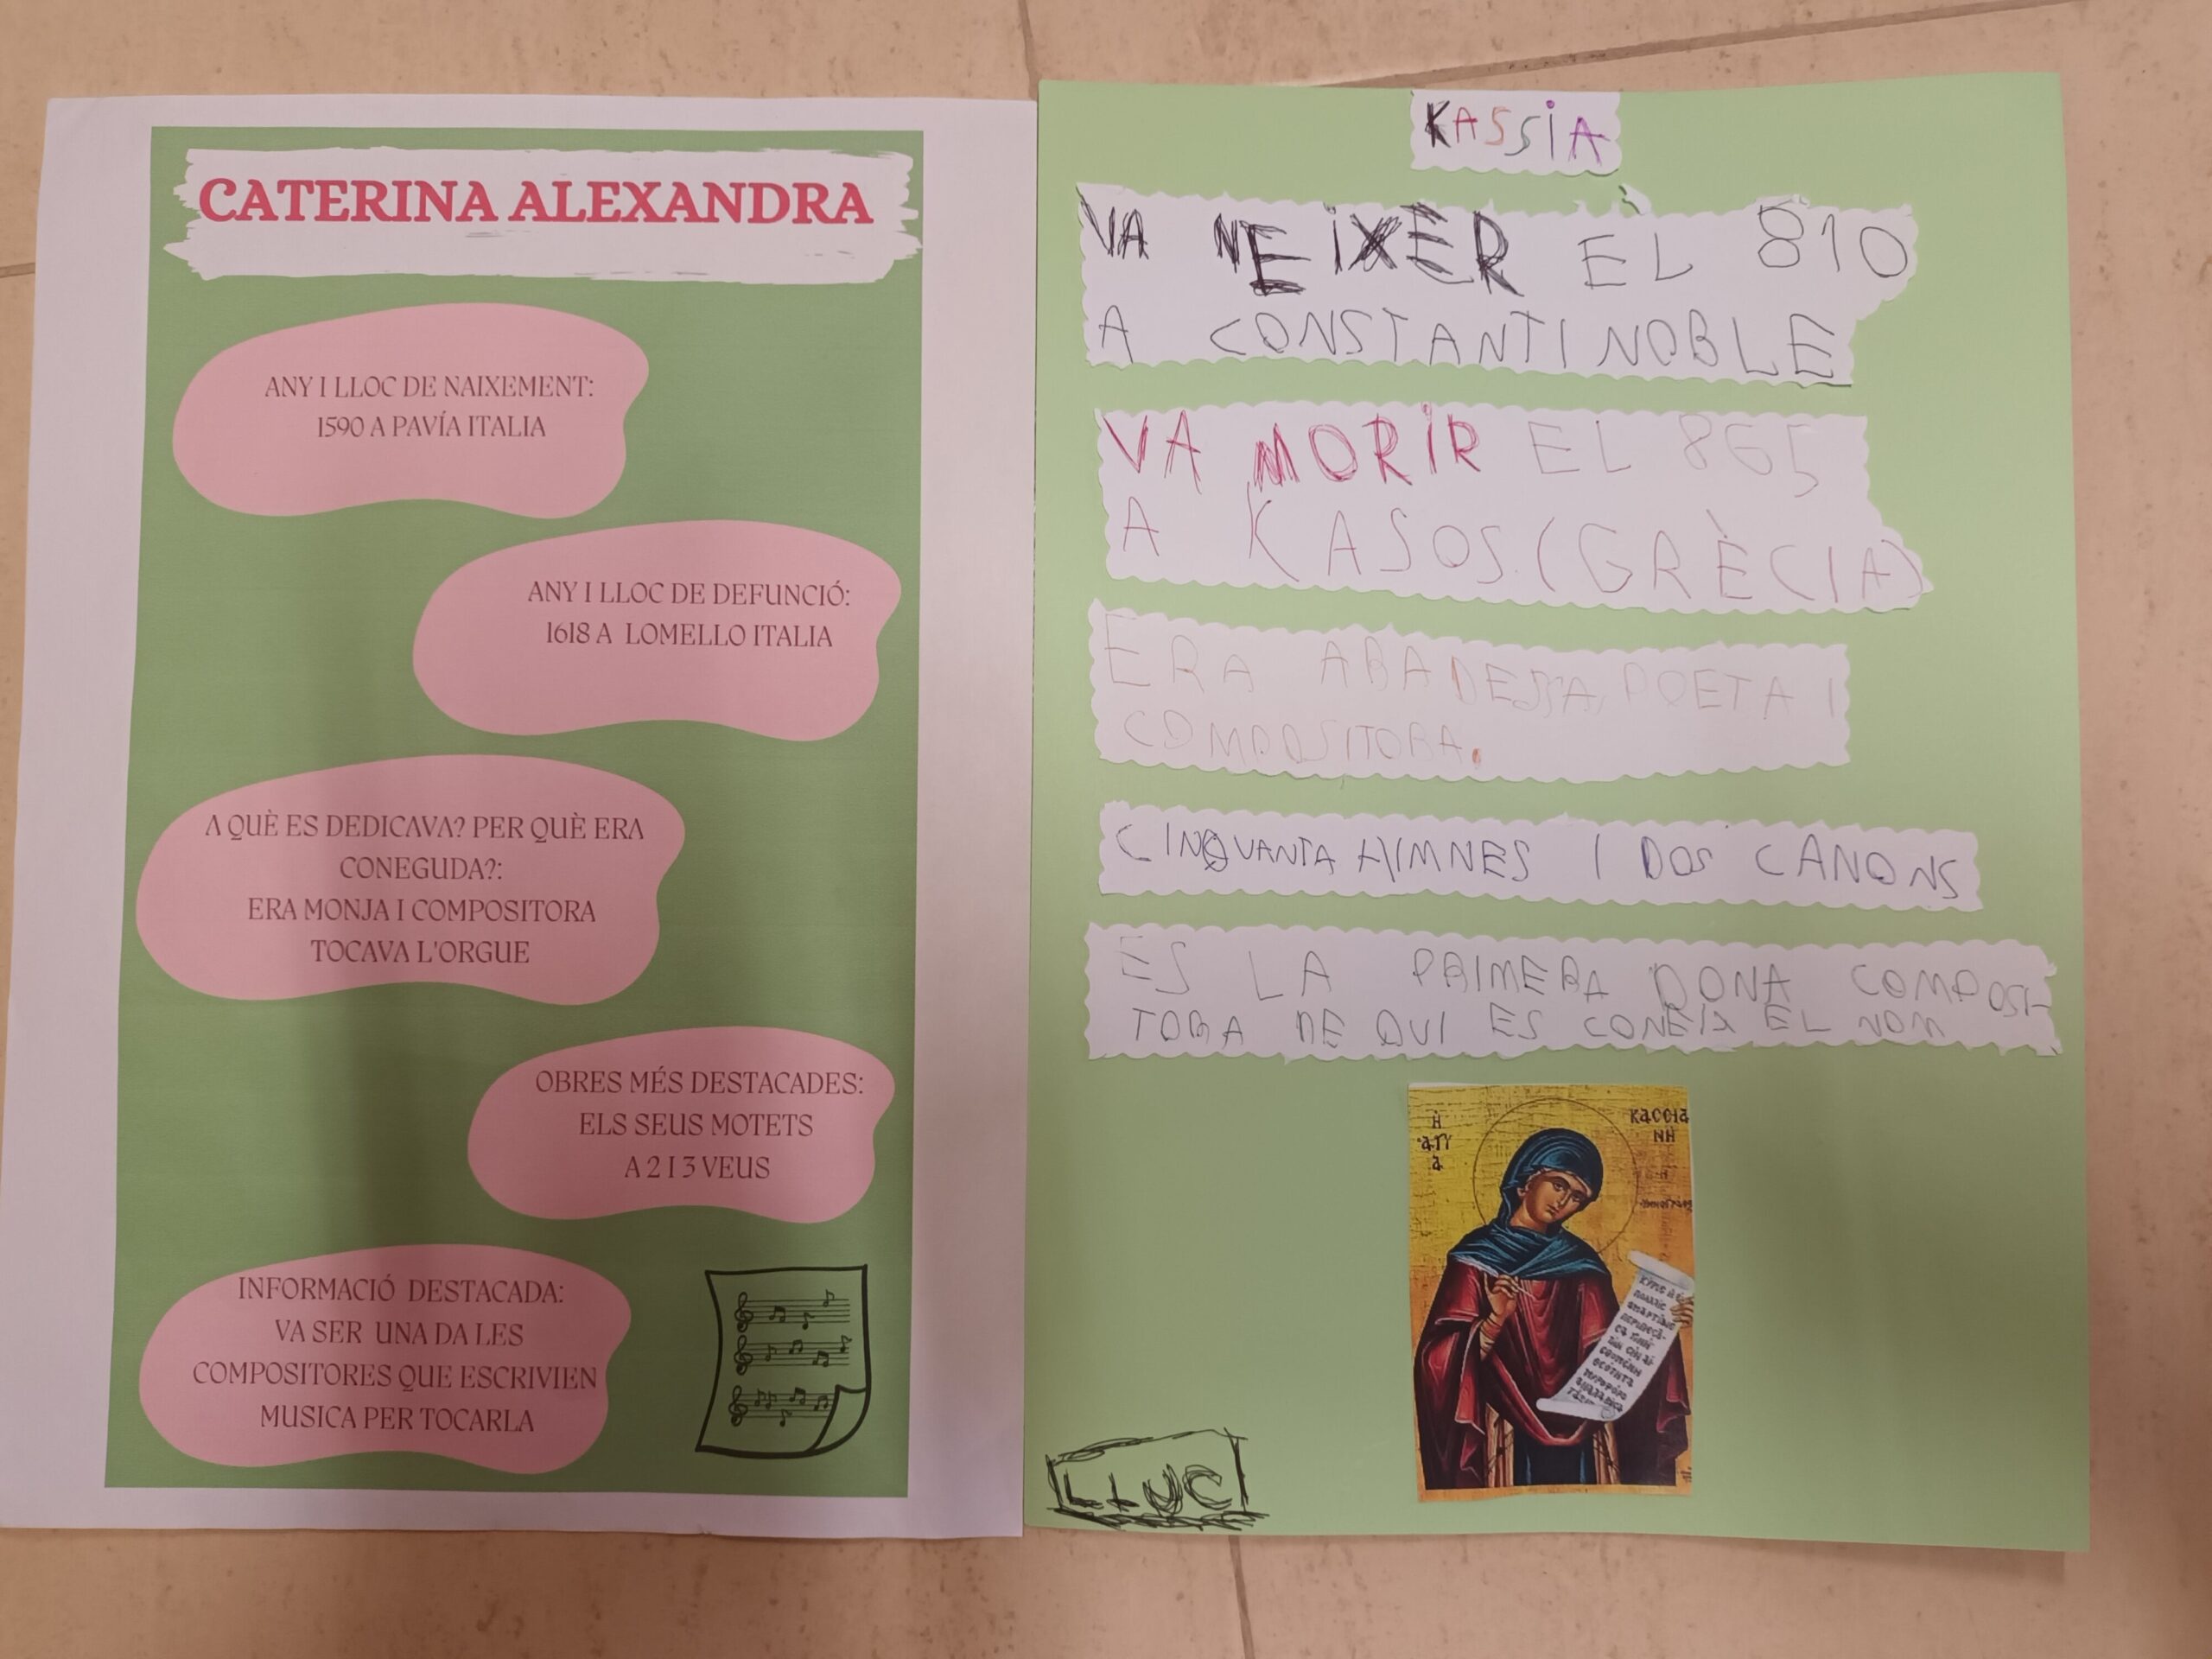 CATERINA ALEXANDRA
ANY I LLOC DE NAIXEMENT:
1590 A PAVÍA ITALIA
ANY I LLOC DE DEFUNCIÓ:
1618 A LOMELLO ITALIA
A QUÈ ES DEDICAVA? PER QUÈ ERA
CONEGUDA?:
ERA MONJA I COMPOSITORA
TOCAVA L'ORGUE
OBRES MÉS DESTACADES:
ELS SEUS MOTETS
A 2 I 3 VEUS
INFORMACIÓ DESTACADA:
VA SER UNA DA LES
COMPOSITORES QUE ESCRIVIEN
MUSICA PER TOCARLA
KASSIA
VA NEIXER EL 810
A CONSTANTINOBLE
VA MORIR EL 865
A KASOS. (GRÈCIA)
ERA ABADESSA, POETA I
COMPOSITORA.
CINQUANTA HIMNES I DOS CANONS
ES LA PRIMERA DONA COMPOSI-
TORA DE QUI ES CONEIX EL NOM
LLUC